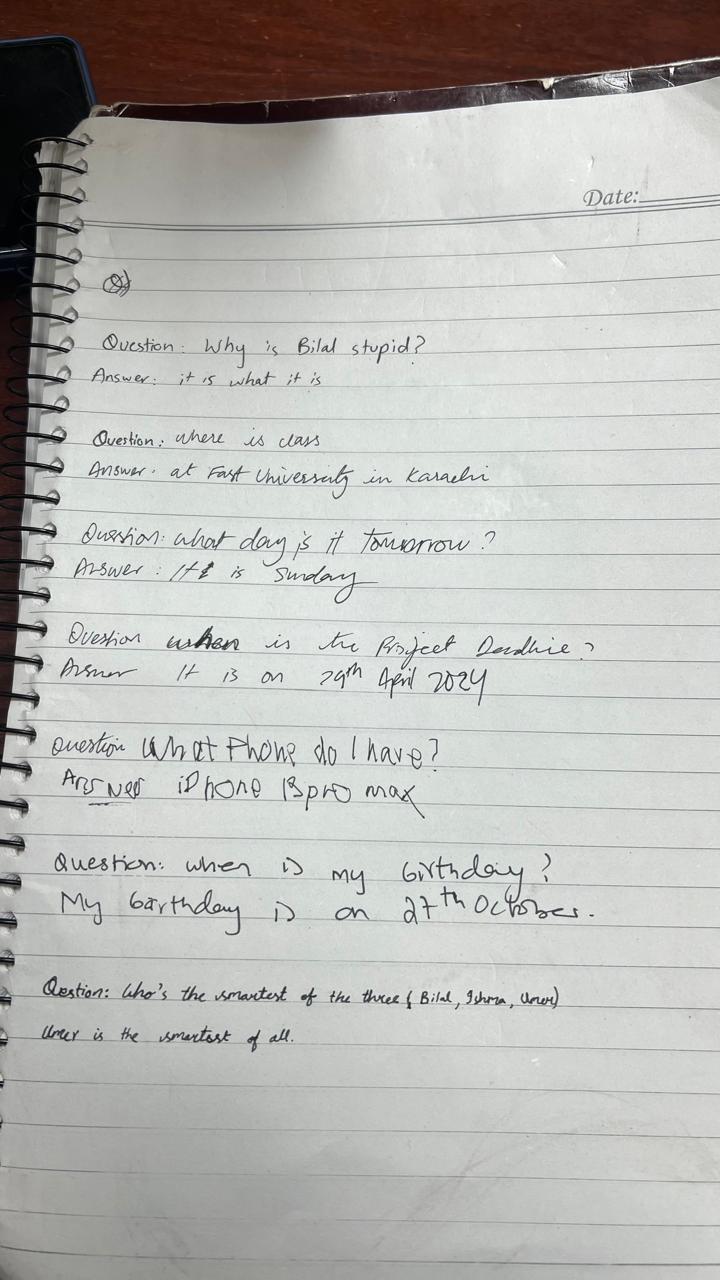 Date:
Q)
Question: Why is Bilal stupid?
Answer: it is what it is
Question: where is class
Answer. at Fast University in Karachi
Question: what day is it tomorrow?
Answer: It is Sunday
Question when is the Project Deadline?
Answer It is on 29th April 2024
Question What Phone do I have?
Answer iPhone 13 pro max
Question: when is my birthday?
My barthday is on 27th October.
Qestion: Who's the smartest of the three (Bilal, Ishma, Umer)
Umer is the smartest of all.